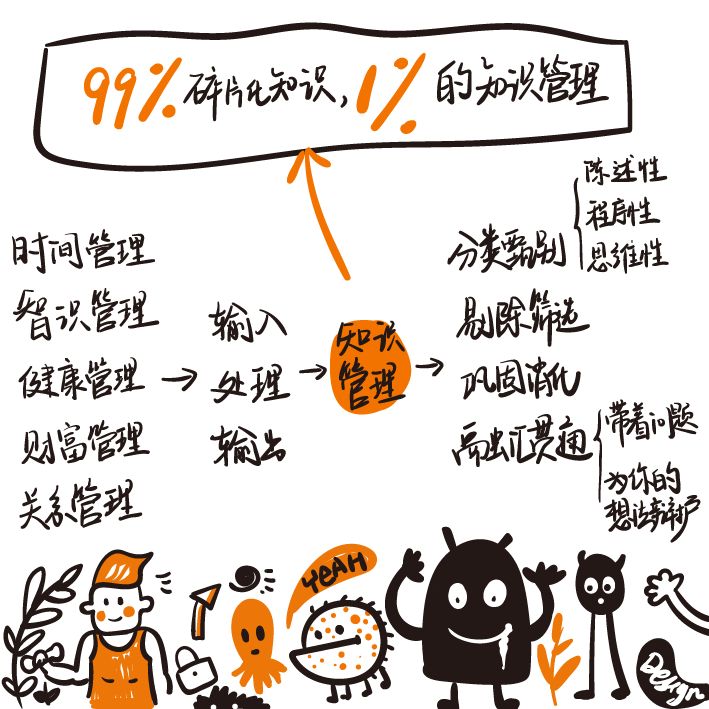 99%碎片化知识，1%的知识管理
时间管理
智识管理
健康管理
财富管理
关系管理
输入
处理
输出
知识
管理
分类甄别
陈述性
程序性
思维性
剔除筛选
巩固消化
融汇贯通
带着问题
为你的
想法辩护
YEAH
Design